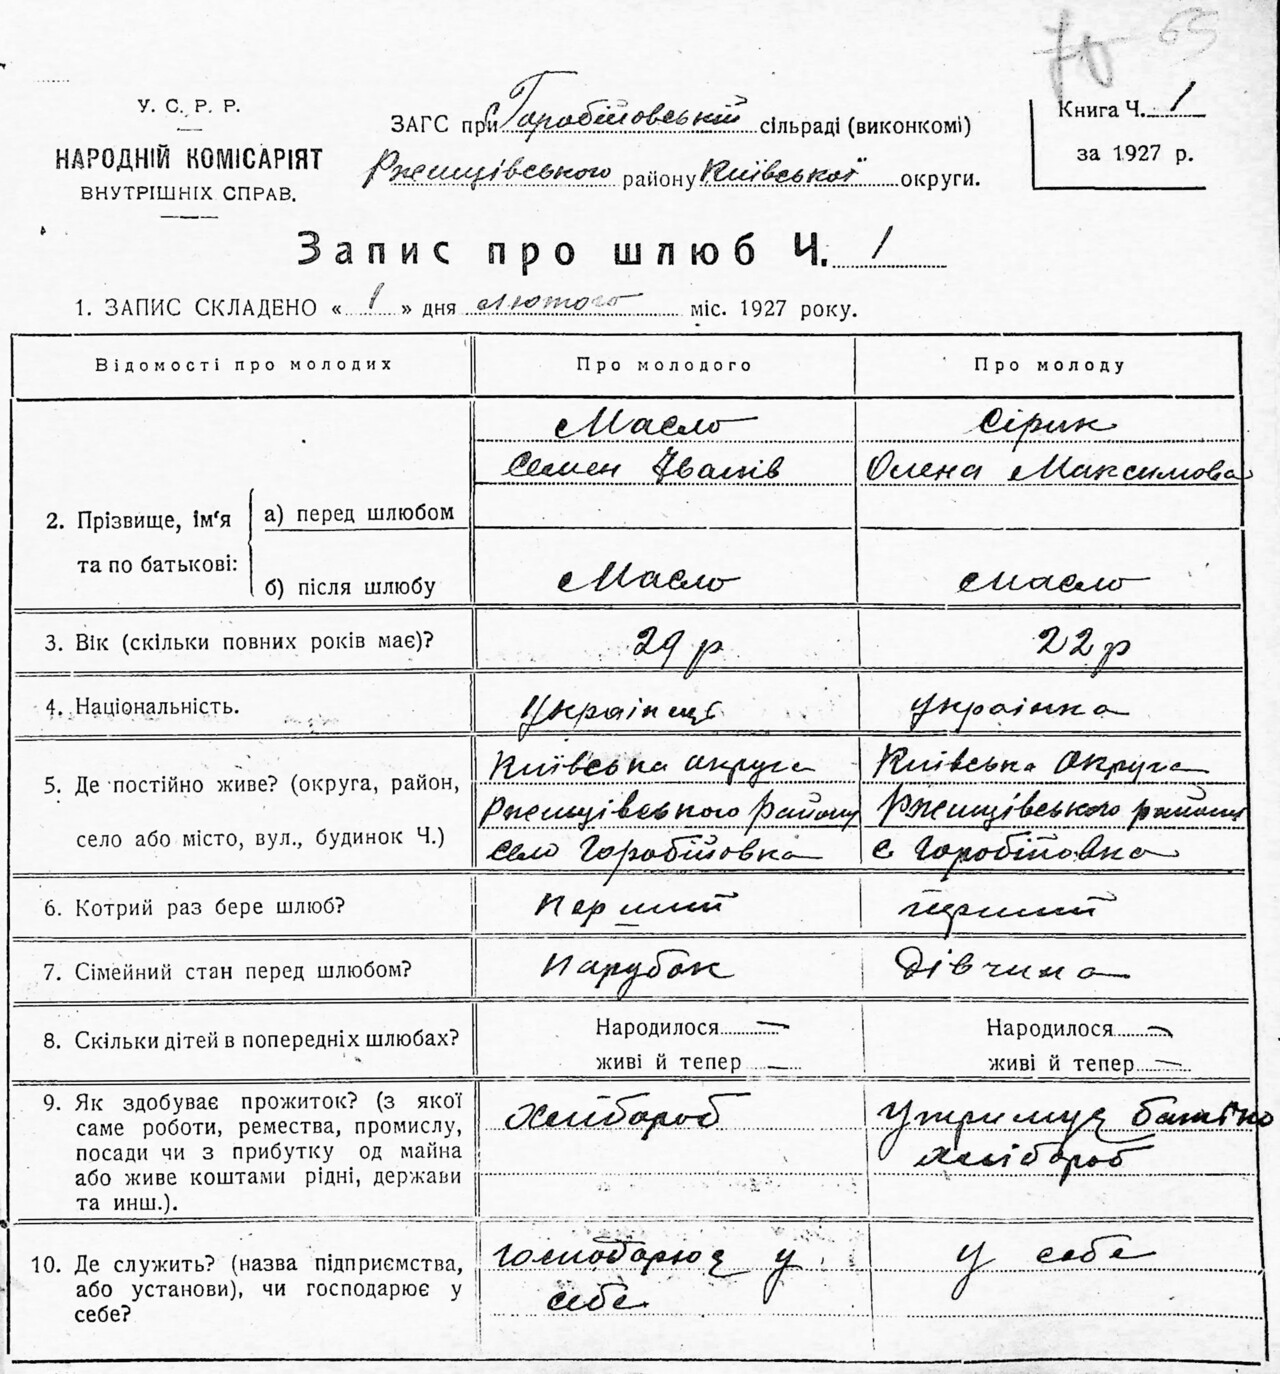 70 65
У. С. Р. Р.
НАРОДНІЙ КОМІСАРІЯТ
ВНУТРІШНІХ СПРАВ.
ЗАГС при Горобіївській сільраді (виконкомі)
Ржищівського району Київської округи.
Книга Ч. 1
за 1927 р.
Запис про шлюб Ч. 1
1. ЗАПИС СКЛАДЕНО « 1 » дня лютого міс. 1927 року.
Відомості про молодих Про молодого Про молоду
Масло Сірик
Семен Іванів Олена Максимова
2. Прізвище, ім‘я та по батькові:
а) перед шлюбом
б) після шлюбу Масло Масло
3. Вік (скільки повних років має)? 29 р 22 р
4. Національність. Українець українка
5. Де постійно живе? (округа, район, село або місто, вул., будинок Ч.)
Київська округа Київська округа
Ржищівського району Ржищівського району
село Горобіївка с Горобіївка
6. Котрий раз бере шлюб? перший перший
7. Сімейний стан перед шлюбом? парубок дівчина
8. Скільки дітей в попередніх шлюбах? Народилося — Народилося —
живі й тепер — живі й тепер —
9. Як здобуває прожиток? (з якої
саме роботи, ремества, промислу,
посади чи з прибутку од майна
або живе коштами рідні, держави
та инш.).
хлібороб утримує батько
хлібороб
10. Де служить? (назва підприємства,
або установи), чи господарює у
себе?
господарює у у себе
себе